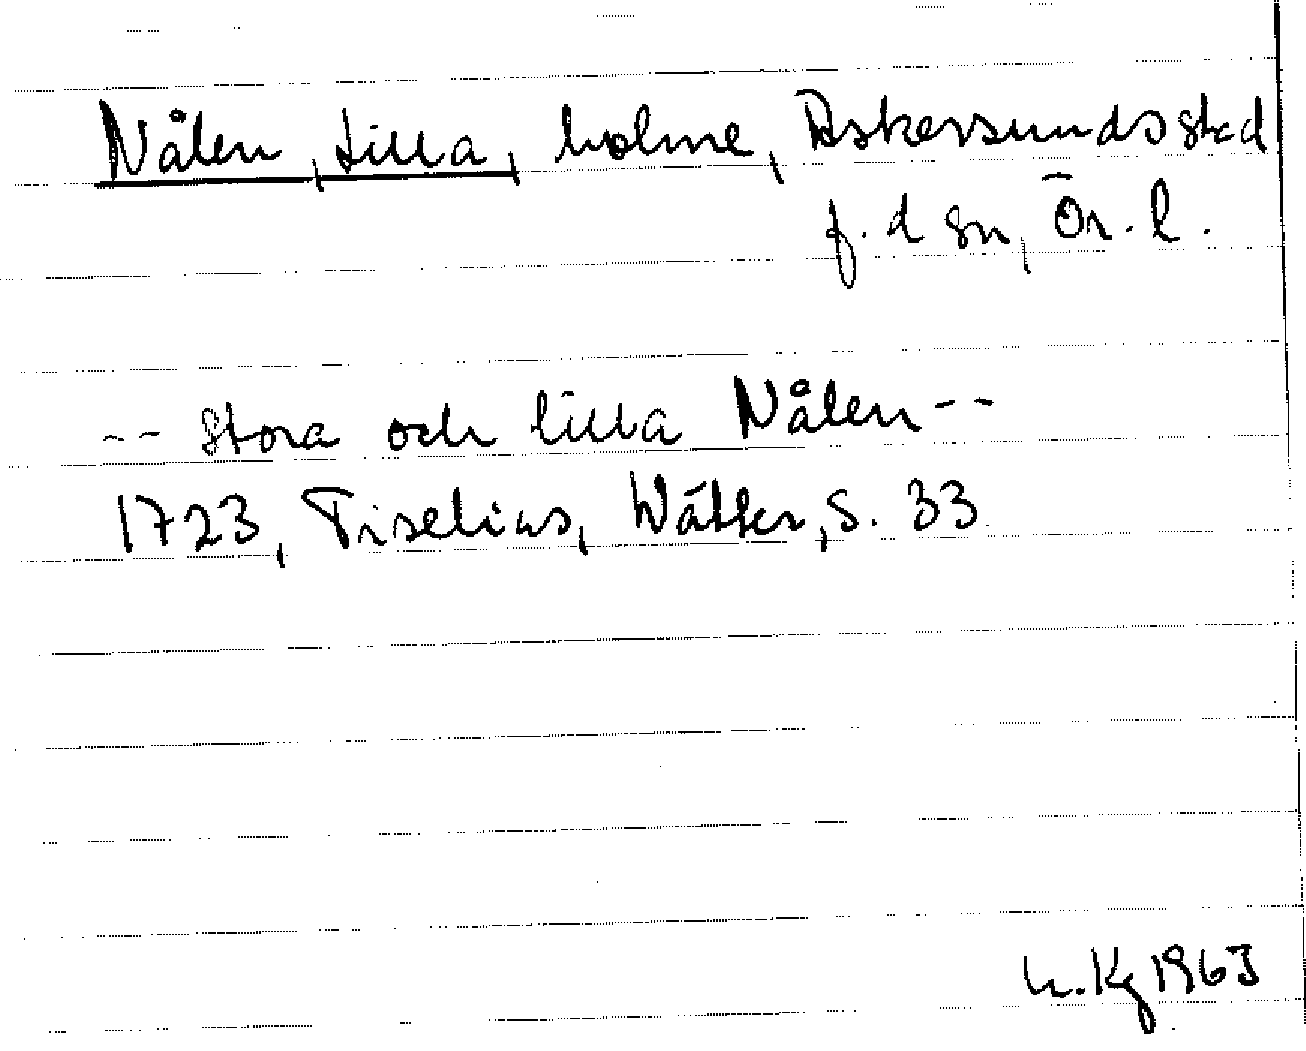 Nålen, Lilla, holme, Askersunds stad
f. d sn, Ör. l.
-- Stora och lilla Nålen --
1723, Tiselius, Wätter, s. 33
1963